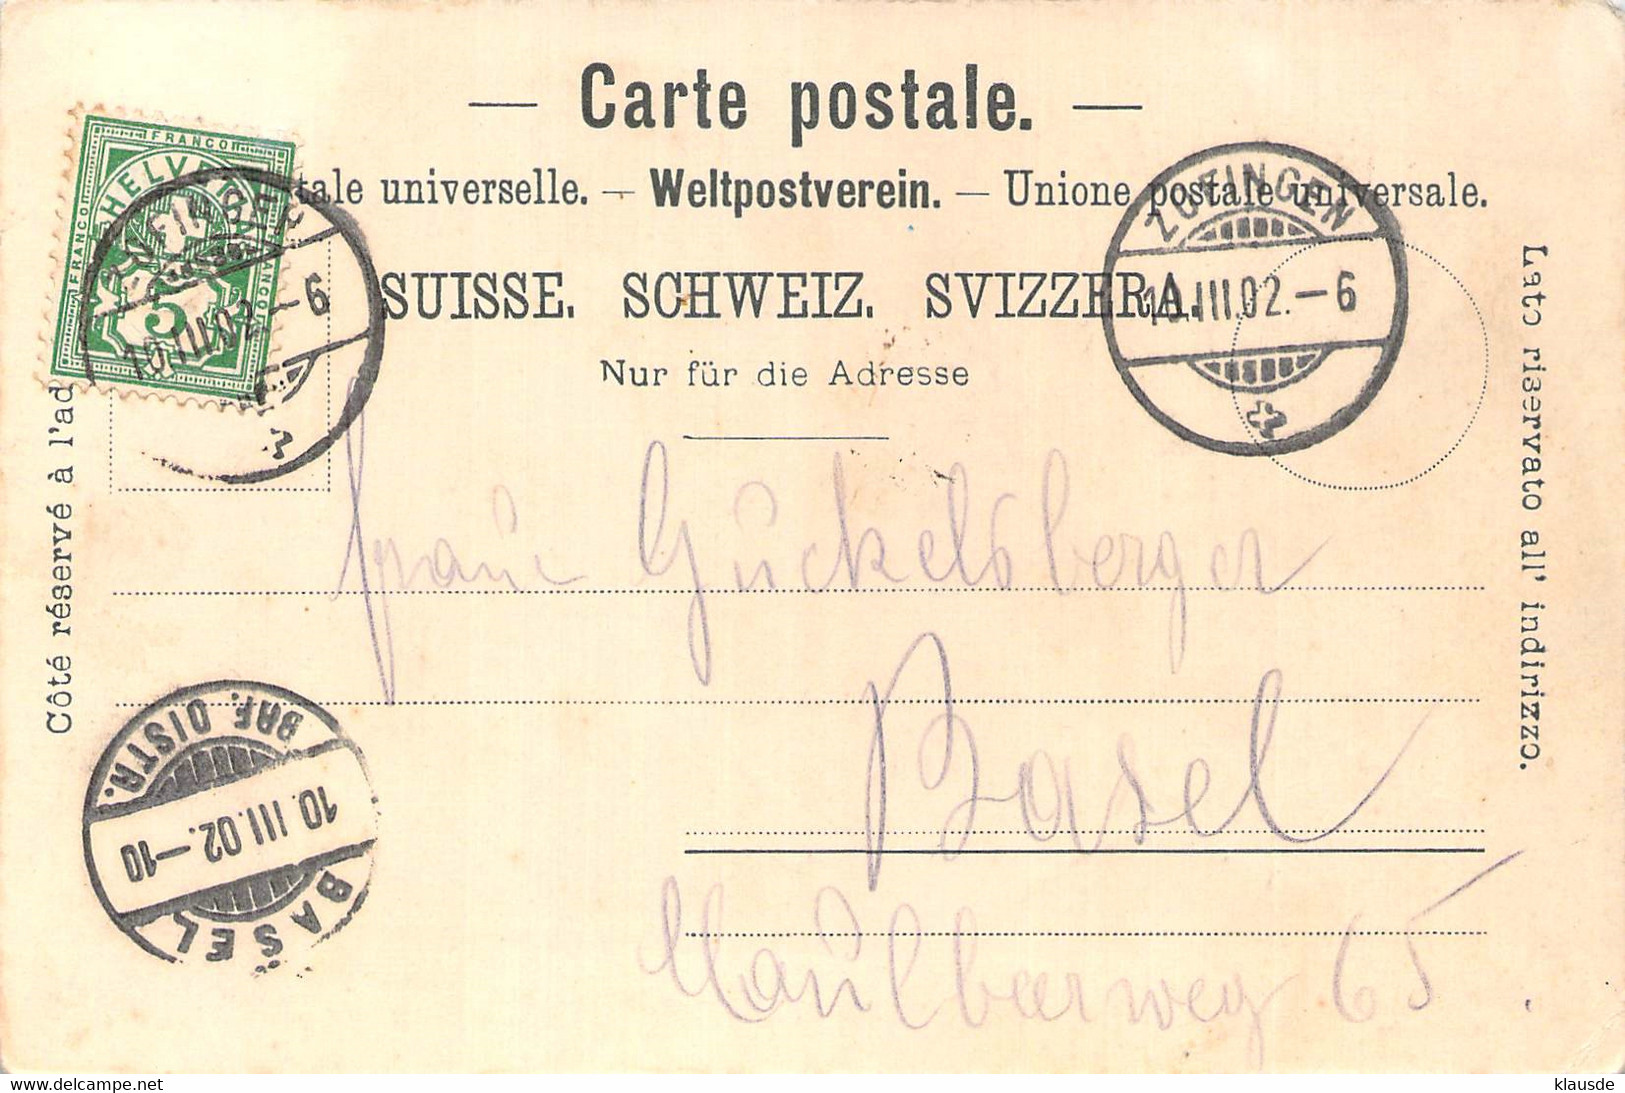 — Carte postale. —
tale universelle. — Weltpostverein. — Unione postale universale.
SUISSE. SCHWEIZ. SVIZZERA.
Nur für die Adresse
FRANCO
FRANCO
FRANCO
HELVETIA
5
ZOFINGEN
10.III.02.–6
ZOFINGEN
10.III.02.–6
Côté réservé à l'ad
Lato riservato all' indirizzo.
Frau Gückelsberger
Basel
Maulbeerweg 65.
BRF. DISTR.
10.III.02.–10
BASEL
www.delcampe.net
klausde